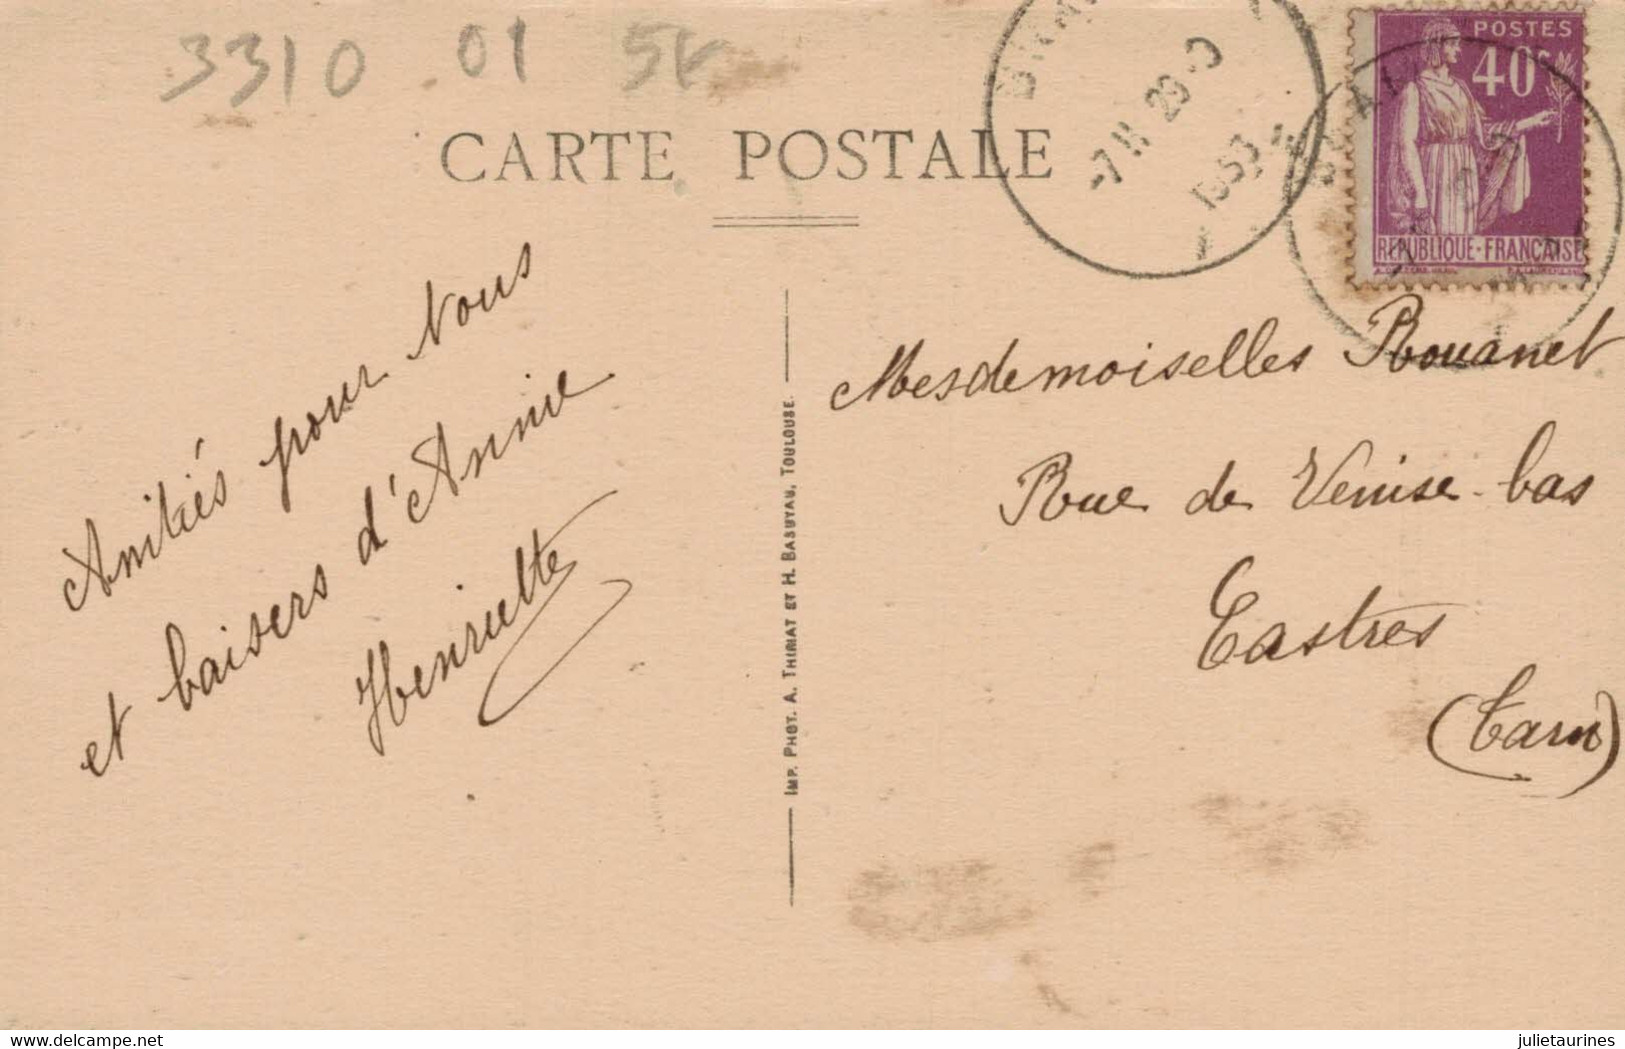 3310 01 5E
CARTE POSTALE
-7 H 20
POSTES
40c
REPUBLIQUE-FRANÇAISE
Amitiés pour Vous
et baisers d'Annie
Henriette
IMP. PHOT. A. THIRIAT ET H. BASUYAU, TOULOUSE.
Mesdemoiselles Rouanet
Rue de Venise-bas
Castres
(Tarn)
delcampe.net
julietaurines